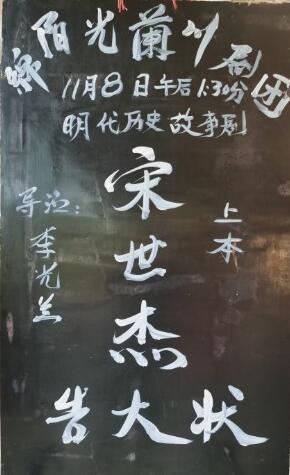 阳光兰川剧团
11月8日午后1:30分
明代历史故事剧
宋世杰
上本
导演:李光兰
告大状